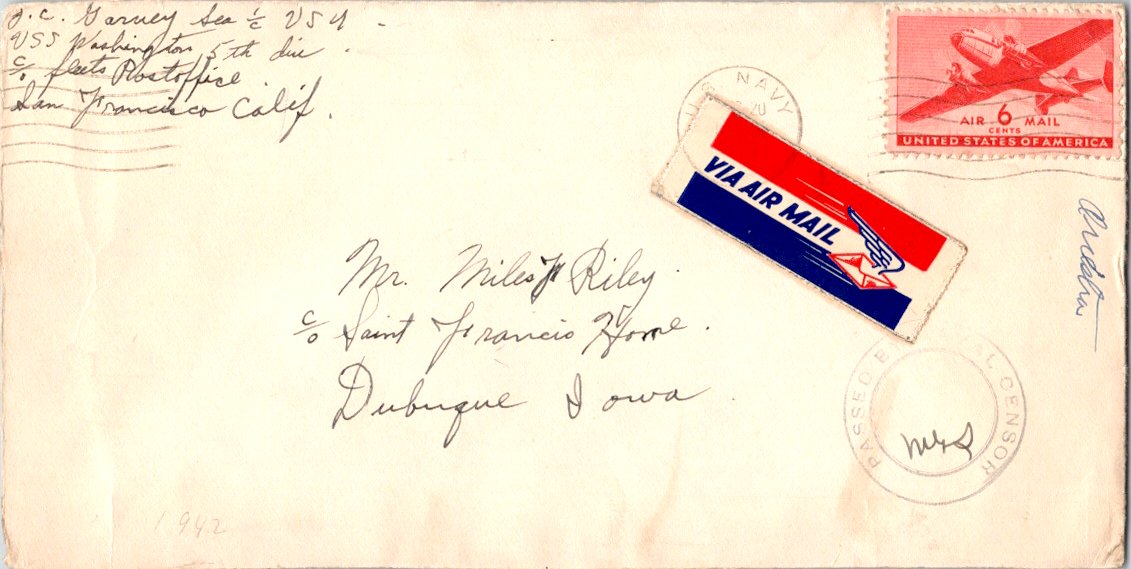 J.C. Garvey Sea 1/c USN
USS Washington 5th div
c/o fleets Postoffice
San Francisco Calif.
U.S. NAVY
AIR 6 MAIL
CENTS
UNITED STATES OF AMERICA
VIA AIR MAIL
Mr. Miles J Riley
c/o Saint Francis Home.
Dubuque Iowa
PASSED B AL CENSOR
1942